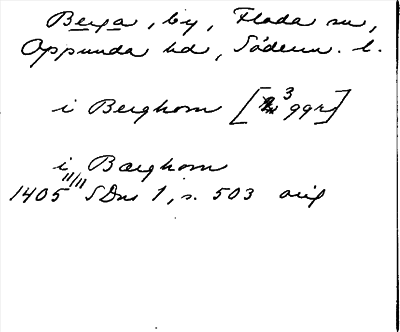 Berga, by, Floda sn,
Oppunda hd, Söderm. l.
i Berghom [3 ggr]
i Bærghom
1405 11/11 SDns 1, s. 503 orig